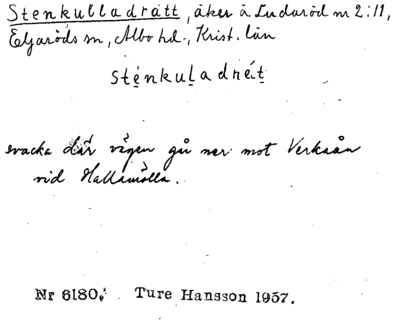 Stenkulladrätt, åker å Ludaröd nr 2:11,
Eljaröds sn, Albo hd., Krist. län
sténkuladrét
svacka där vägen går ner mot Verkaån
vid Hallamölla.
Nr 6180. Ture Hansson 1957.